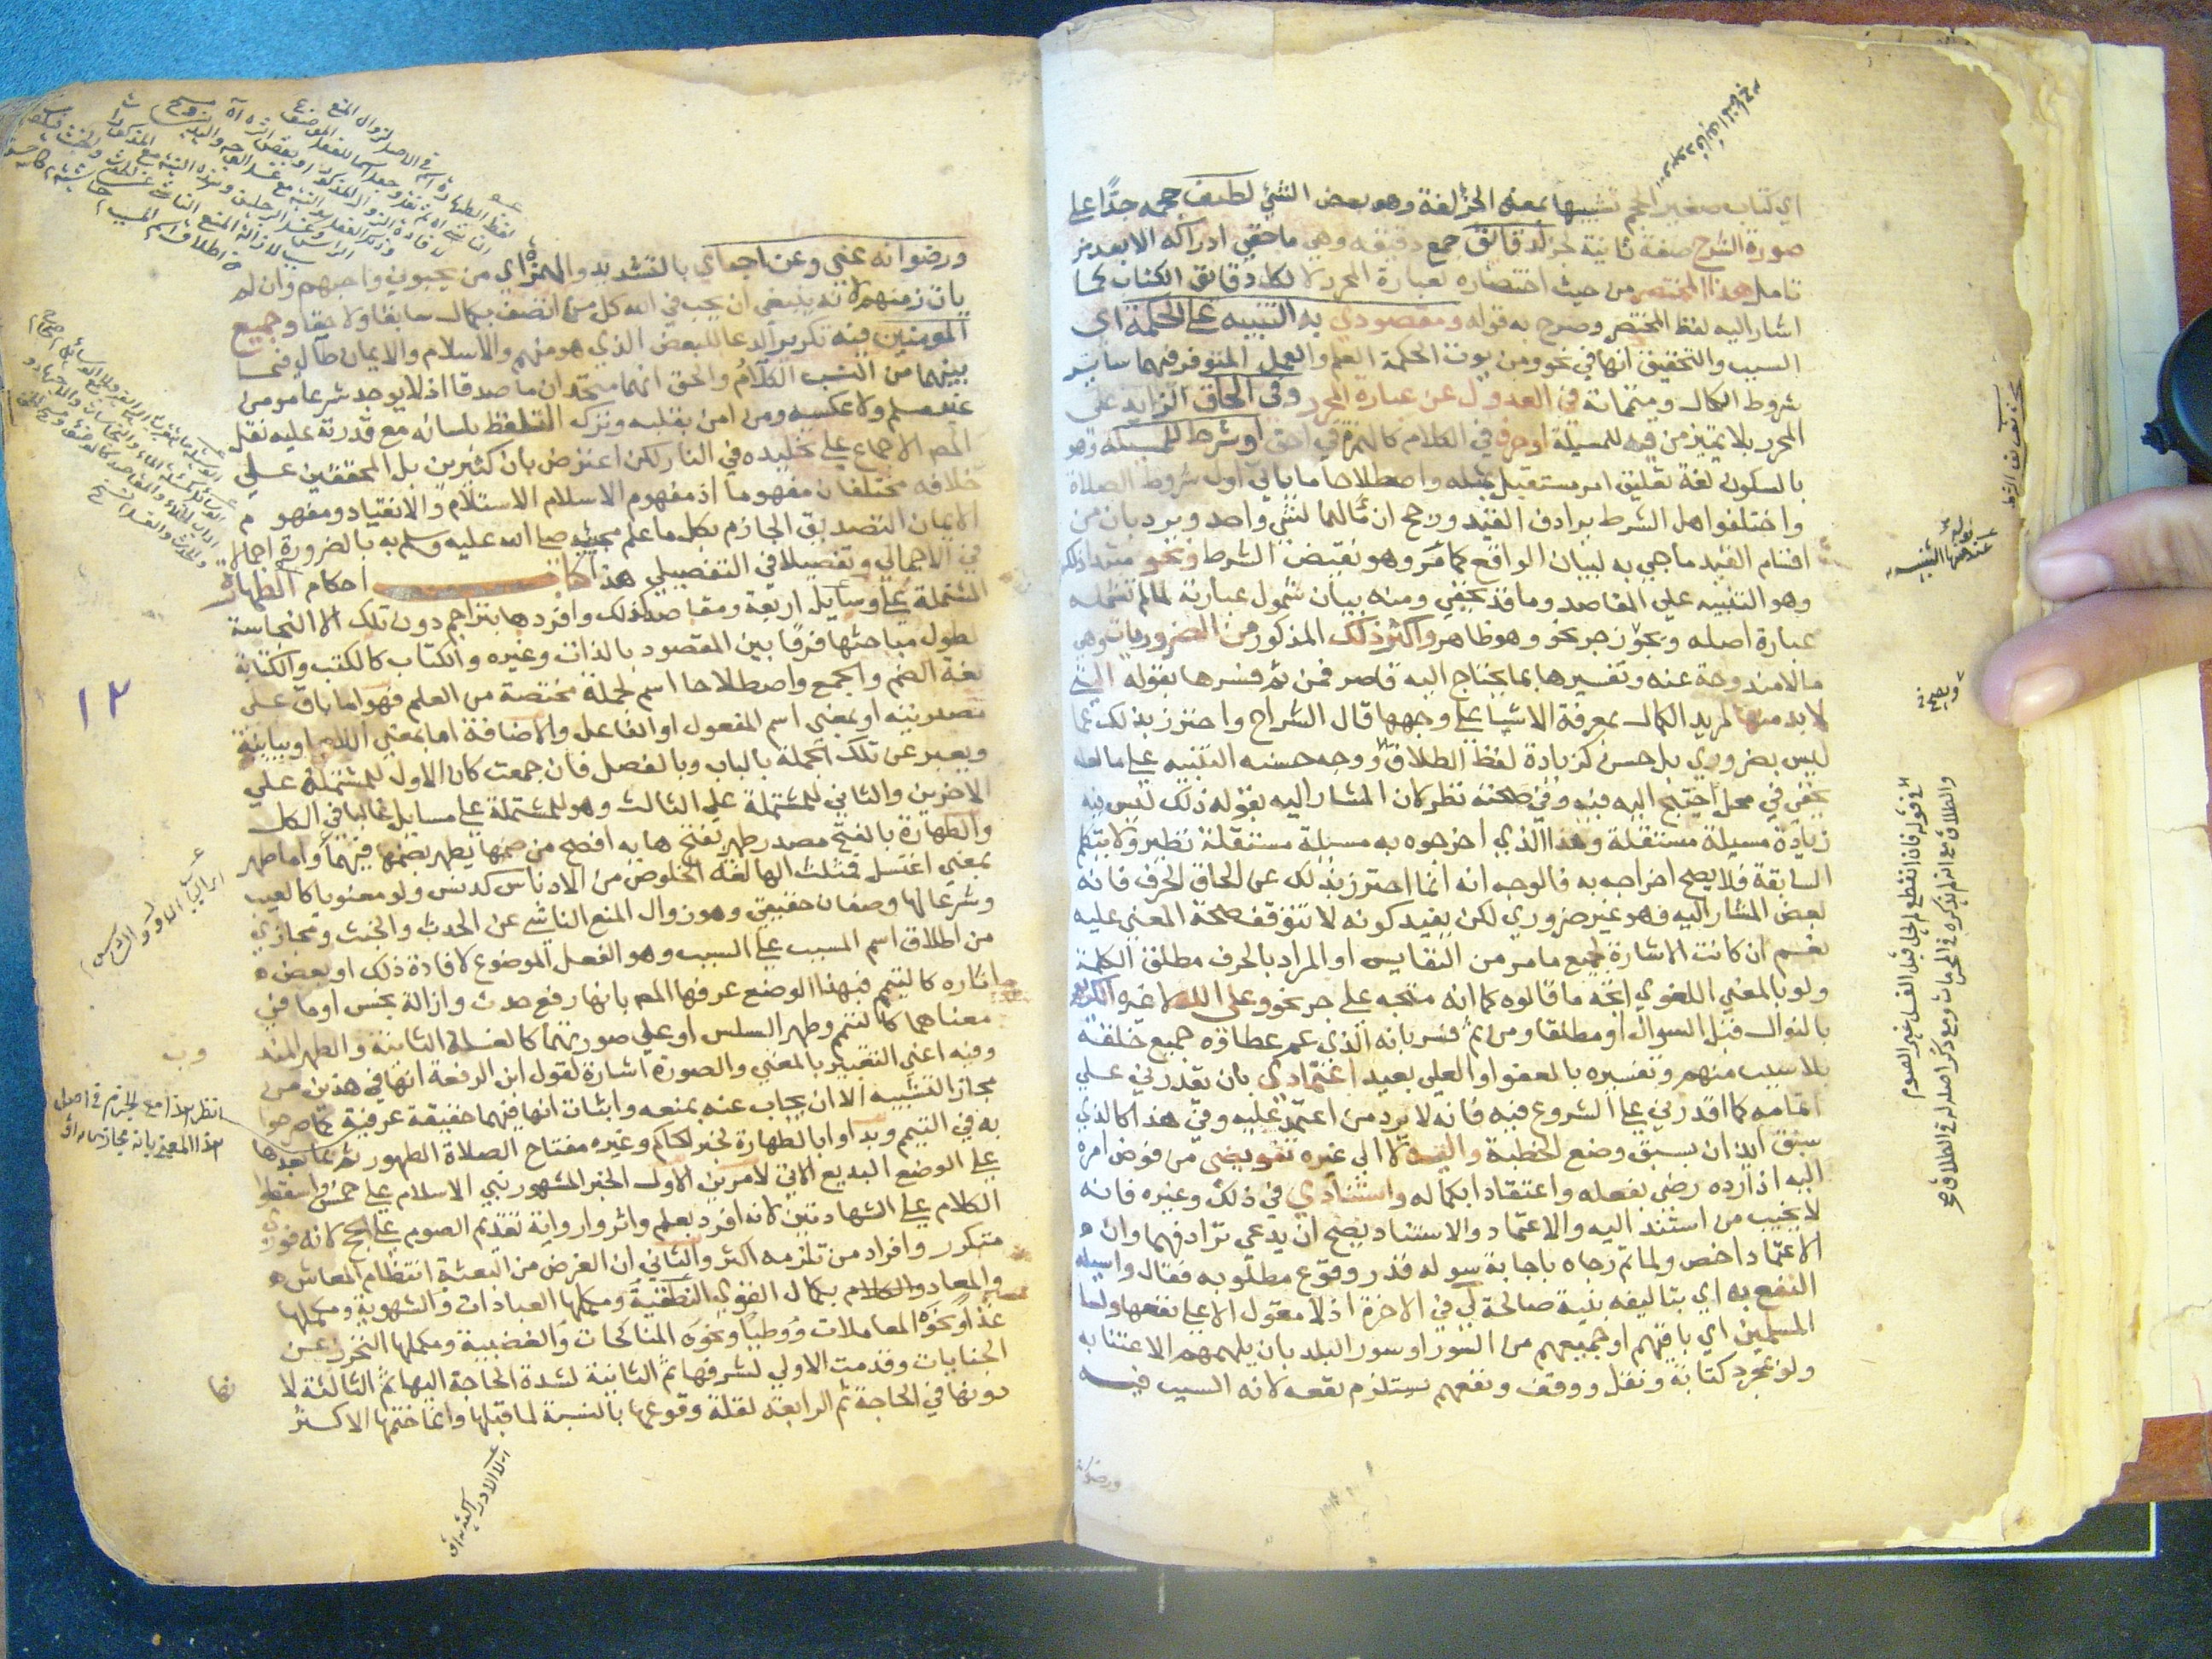 اي كتاب صغير الحجم تشبيها بمعنى الجزء لغة وهو بعض الشئ لطيف حجمه جدا على
صورة الشرح صفة ثانية لجزء دقائق جمع دقيقه وهي ما خفي ادراكه الا بعد مزيد
تامل هذا المختصر من حيث اختصاره لعبارة المحرر لا لكل دقائق الكتاب كما
اشار اليه لفظ المختصر وصرح به قوله ومقصودي به التنبيه على الحكمة اي
السبب والتحقيق انها في نحو ومن يوت الحكمة العلم والعمل المتوفر فيهما ساير
شروط الكمال ومتمماته في العدول عن عبارة المحرر وفي الحاق الزايد على
المحرر بلا تمييز من قيد للمسيلة او حرف في الكلام كالهمزة في احق او شرط للمسيلة وهو
بالسكون لغة تعليق امر مستقبل بمثله واصطلاحا ما ياتي اول شروط الصلاة
واختلفوا هل الشرط يرادف القيد ورجح ان مآلهما لشي واحد ويرد بان من
اقسام القيد ما جي به لبيان الواقع كما مر وهو نقيض الشرط ونحو
وهو التنبيه على المقاصد وما قد يخفي ومنه بيان شمول عبارته لما لم تشمله
عبارة اصله ويجوز جر نحو وهو ظاهر واكثر ذلك المذكور من الضروريات وهي
ما لا مندوحة عنه وتفسيرها بما يحتاج اليه قاصر فمن ثم فسرها بقوله التي
لا بد منها لمريد الكمال بمعرفة الاشيا على وجهها قال الشراح واحترز بذلك عما
ليس بضروري بل حسن كزيادة لفظ الطلاق ووجه حسنه التنبيه على ما لعله
يخفي في محل احتيج اليه فيه وفي صحته نظر لان المشار اليه بقوله ذلك ليس فيه
زيادة مسيلة مستقلة وهذا الذي اخرجوه به مسئلة مستقلة نظير ولا يتكلم
السابقة فلا يصح اخراجه به فالوجه انه انما احترز بذلك عن الحاق الحرف فانه
بعض المشار اليه فهو غير ضروري لكن بقيد كونه لا تتوقف صحة المعنى عليه
نعم ان كانت الاشارة لجميع ما مر من النفايس او المراد بالحرف مطلق الكلمة
ولو بالمعنى اللغوي اتجه ما قالوه كما انه متجه على جر نحو وعلى الله لا غيره الكريم
بالنوال قبل السوال او مطلقا ومن ثم فسر بانه الذي عم عطاؤه جميع خلقه
بلا سبب منهم وتفسيره بالعفو او العلي بعيد اعتمادي بان يقدرني على
اتمامه كما اقدرني على الشروع فيه فانه لا يرد من اعتمد عليه وفي هذا كالذي
سبق ايذان بسبق وضع الخطبة واليه لا الى غيره تفويضي من فوض امره
اليه اذا رده رضى بفعله واعتقادا بكماله واستنادي في ذلك وغيره فانه
لا يخيب من استند اليه والاعتماد والاستناد يصح ان يدعي ترادفهما وان
الاعتماد اخص ولما تم رجاه باجابة سوله قدر وقوع مطلوبه فقال واسيله
النفع به اي بتاليفه بنية صالحة لي في الاخرة اذ لا معقول الا على نفعها ولسا
المسلمين اي باقيهم او جميعهم من السور او سور البلد بان يلهمهم الاعتنا به
ولو بمجرد كتابة ونقل ووقف ونفعهم يستلزم نفعه لانه السبب فيه
ورضوانه
ورضوانه عني وعن احبائي بالتشديد والهمز اي من يحبوني واحبهم وان لم
يات زمنهم لانه ينبغي ان يحب في الله كل من اتصف بكمال سابقا ولاحقا وجميع
المومنين فيه تكرير الدعا للبعض الذي هو منهم والاسلام والايمان طال فيما
بينهما من النسب الكلام والحق انهما متحدان ماصدقا اذ لا يوجد شرعا مومن
غير مسلم ولا عكسه ومن امن بقلبه وترك التلفظ بلسانه مع قدرته عليه نقل
المص الاجماع على تخليده في النار لكن اعترض بان كثيرين بل المحققين على
خلافه مختلفان مفهوما اذ مفهوم الاسلام الاستلام والانقياد ومفهوم
الايمان التصديق الجازم بكل ما علم مجيئه صلى الله عليه وسلم به بالضرورة اجمالا
في الاجمالي وتفصيلا في التفصيلي هذا كتاب احكام الطهارة
المشتملة على وسايل اربعة ومقاصد كذلك وافردها بتراجم دون تلك الا النجاسة
لطول مباحثها فرقا بين المقصود بالذات وغيره والكتاب كالكتب والكتابة
لغة الضم والجمع واصطلاحا اسم لجملة مختصة من العلم فهو اما باق على
مصدريته او بمعنى اسم المفعول او الفاعل والاضافة اما بمعنى اللام او بيانية
ويعبر عن تلك الجملة بالباب وبالفصل فان جمعت كان الاول للمشتملة على
الاخرين والثاني للمشتملة على الثالث وهو للمشتملة على مسايل غالبا في الكل
والطهارة بالفتح مصدر طهر بفتح هايه افصح من ضمها يطهر بضمها فيهما واما طهر
بمعنى اغتسل فمثلث الها لغة الخلوص من الادناس كدنس ولو معنويا كالعيب
وشرعا لها وضعان حقيقي وهو زوال المنع الناشي عن الحدث والخبث ومجازي
من اطلاق اسم المسبب على السبب وهو الفعل الموضوع لافادة ذلك او بعض
اثاره كالتيمم فبهذا الوضع عرفها المص بانها رفع حدث وازالة نجس او ما في
معناهما كالتيمم وطهر السلس او على صورتهما كالغسلة الثانية والطهر المندوب
وفيه اعني التعبير بالمعنى والصورة اشارة لقول ابن الرفعة انها في هذين من
مجاز التشبيه الا ان يجاب عنه بمنعه واثبات انها فيهما حقيقة عرفية كما صرحوا
به في التيمم وبداوا بالطهارة لخبر الحاكم وغيره مفتاح الصلاة الطهور ثم بما بعدها
على الوضع البديع الاتي لامرين الاول الخبر المشهور بني الاسلام على خمس واسقطوا
الكلام على الشهادتين لانه افرد بعلم واثروا رواية تقديم الصوم على الحج لانه فوري
متكرر وافراد من تلزمه اكثر والثاني ان الغرض من البعثة انتظام المعاش
والمعاد بكمال القوى النطقية ومكملها العبادات والشهوية ومكملها
غذا ونحوه المعاملات ووطيا ونحوه المناكحات والغضبية ومكملها التحرز عن
الجنايات وقدمت الاولى لشرفها ثم الثانية لشدة الحاجة اليها ثم الثالثة لا
دونها في الحاجة ثم الرابعة لقلة وقوعها بالنسبة لما قبلها وانما ختمها الاكثر
١٢
انظر هذا مع الجزم في اصل
هذا المعنى بانه مجاز